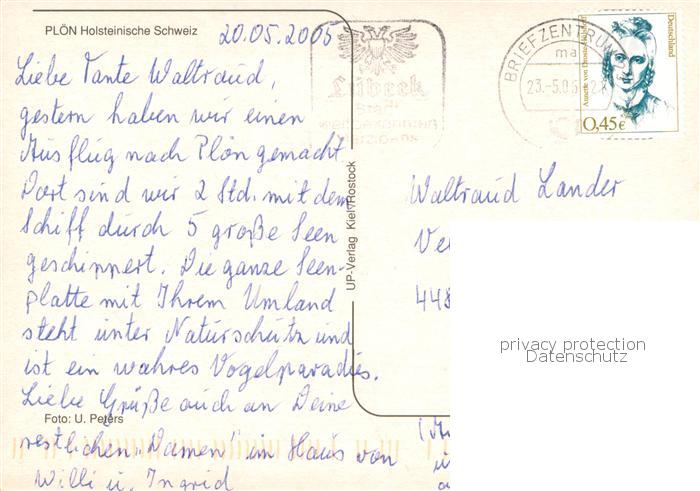 PLÖN Holsteinische Schweiz
20.05.2005
Liebe Tante Waltraud,
gestern haben wir einen
Ausflug nach Plön gemacht
Dort sind wir 2 Std. mit dem
Schiff durch 5 große Seen
geschippert. Die ganze Seen-
platte mit Ihrem Umland
steht unter Naturschutz und
ist ein wahres Vogelparadies.
Liebe Grüße auch an Deine
restlichen „Damen" im Haus von
Willi u. Ingrid
Foto: U. Peters
UP-Verlag Kiel/Rostock
Lübeck
BRIEFZENTRUM
ma
23.-5.05
Deutschland
Annette von
0,45€
Waltraud Lander
Ve
448
privacy protection
Datenschutz